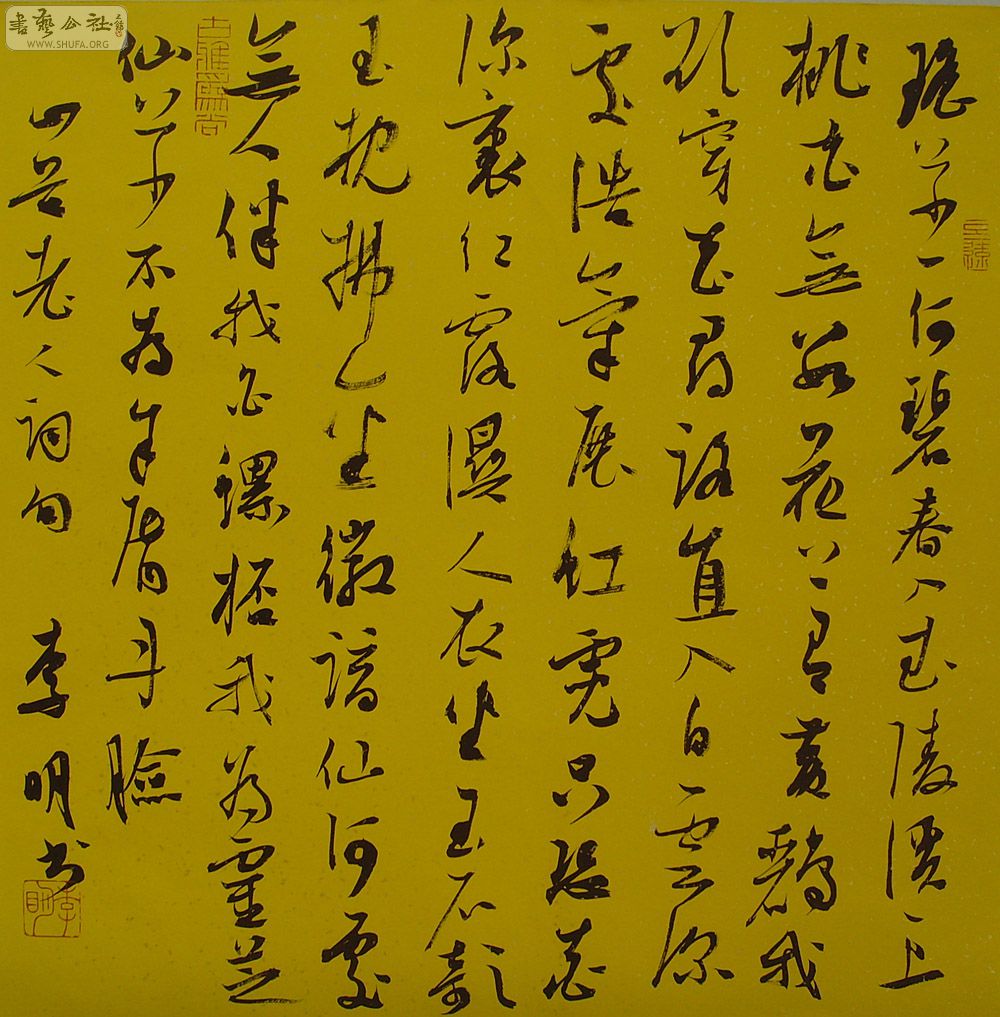 書藝公社
WWW.SHUFA.ORG
瑤草一何碧春入武陵溪溪上
桃花無數花上有黃鸝我
欲穿花尋路直入白雲深
處浩氣展虹霓只恐花
深裏紅露濕人衣坐玉石敧
玉枕拂金徽謫仙何處
無人伴我白螺杯我為靈芝
仙草不為朱唇丹臉
山谷老人詞句 李明書
古雅為尚
李明